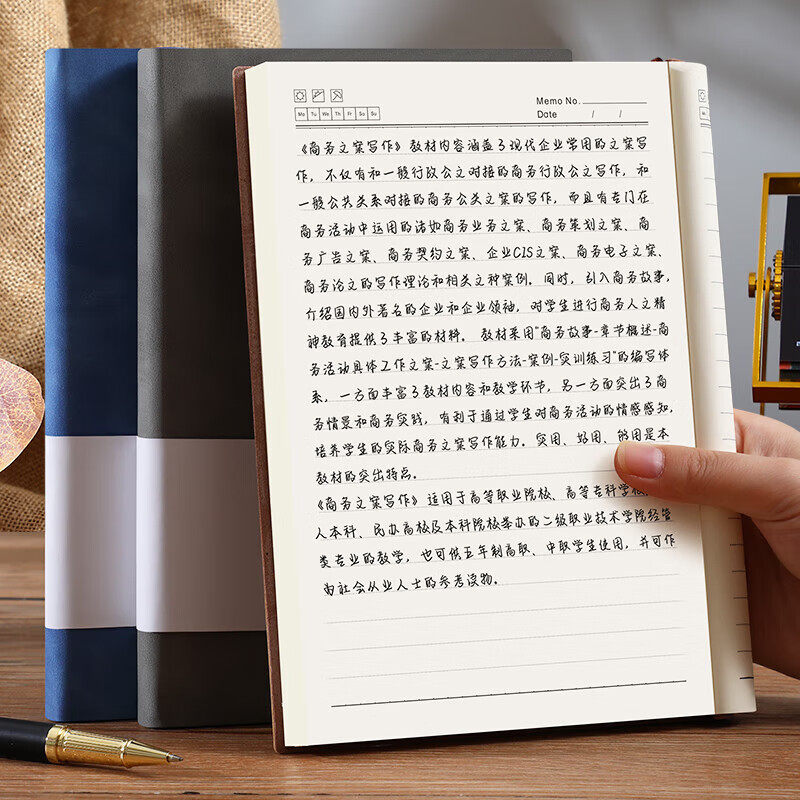 Memo No.
Mo Tu We Th Fr Sa Su
Date / /
《商务文案写作》教材内容涵盖了现代企业常用的文案写
作,不仅有和一般行政公文对接的商务行政公文写作,和
一般公共关系对接的商务公关文案的写作,而且有专门在
商务活动中运用的诸如商务业务文案、商务策划文案、商
务广告文案、商务契约文案、企业CIS文案、商务电子文案、
商务论文的写作理论和相关文种案例。同时,引入商务故事,
介绍国内外著名的企业和企业领袖,对学生进行商务人文精
神教育提供了丰富的材料。教材采用"商务故事-章节概述-商
务活动具体工作文案-文案写作方法-案例-实训练习"的编写体
系,一方面丰富了教材内容和教学环节,另一方面突出了商
务情景和商务实践,有利于通过学生对商务活动的情感感知,
培养学生的实际商务文案写作能力。实用、好用、够用是本
教材的突出特点。
《商务文案写作》适用于高等职业院校、高等专科学校、
人本科、民办高校及本科院校举办的二级职业技术学院经管
类专业的教学,也可供五年制高职、中职学生使用,并可作
为社会从业人士的参考读物。